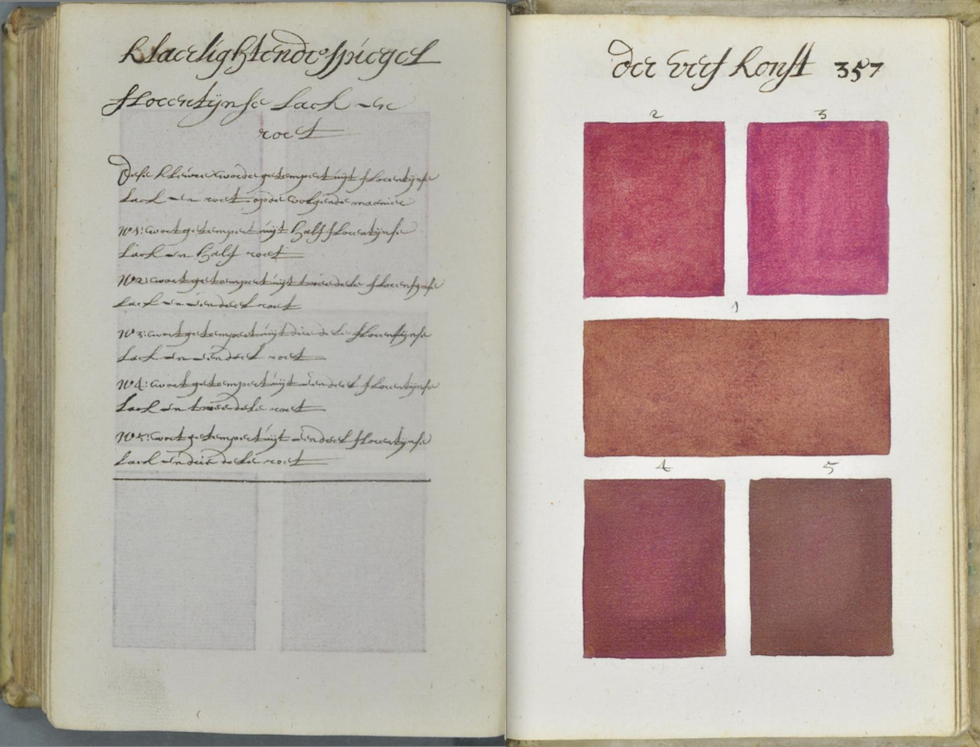 klaerlightende spiegel
florentijnse lack en
roet
Dese kleuren worde getempert uijt florentijnse
lack en roet op de volgende manier
No 1: wort getempert uijt half florentijnse
lack en half roet
No 2: wort getempert uijt twee dele florentijnse
lack en een deel roet
No 3: wort getempert uijt drie dele florentijnse
lack en een deel roet
No 4: wort getempert uijt een deel florentijnse
lack en twee dele roet
No 5: wort getempert uijt een deel florentijnse
lack en drie dele roet
der verf konst 357
2 3
1
4 5